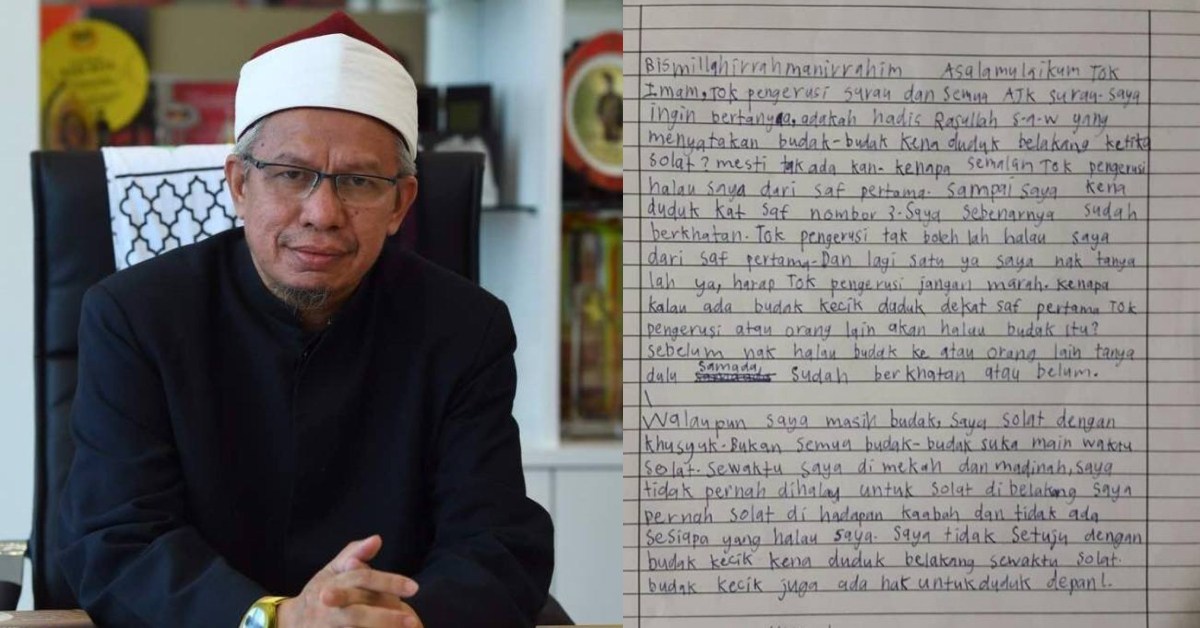 Bismillahirrahmanirrahim Asalamulaikum Tok
Imam, Tok pengerusi surau dan semua AJK surau. Saya
ingin bertanya, adakah hadis Rasullah s.a.w yang
menyatakan budak-budak kena duduk belakang ketika
solat? mesti tak ada kan. kenapa semalam Tok pengerusi
halau saya dari saf pertama. Sampai saya kena
duduk kat saf nombor 3. Saya sebenarnya sudah
berkhatan. Tok pengerusi tak boleh lah halau saya
dari saf pertama. Dan lagi satu ya saya nak tanya
lah ya, harap Tok pengerusi jangan marah. kenapa
kalau ada budak kecik duduk dekat saf pertama Tok
pengerusi atau orang lain akan halau budak itu?
Sebelum nak halau budak ke atau orang lain tanya
dulu samada sudah berkhatan atau belum.
Walaupun saya masih budak, saya solat dengan
khusyuk. Bukan semua budak-budak suka main waktu
solat. Sewaktu saya di mekah dan madinah, saya
tidak pernah dihalau untuk solat di belakang saya
pernah solat di hadapan kaabah dan tidak ada
sesiapa yang halau saya. Saya tidak setuju dengan
budak kecik kena duduk belakang sewaktu solat.
budak kecik juga ada hak untuk duduk depan!.